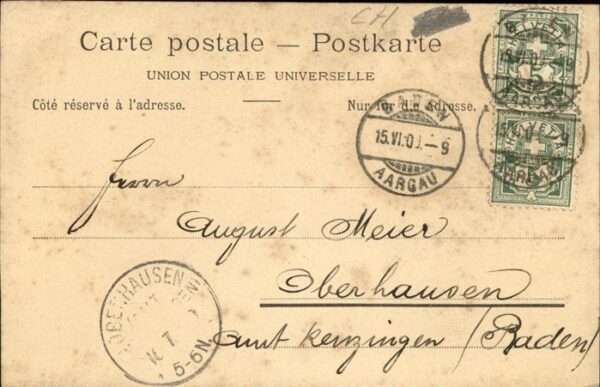 CH
Carte postale — Postkarte
UNION POSTALE UNIVERSELLE
Côté réservé à l'adresse.
Nur für die Adresse.
BADEN
15.VI.0 .–9
AARGAU
BADEN
AARGAU
HELVETIA
5
AARGAU
5
Herrn
August Meier
Oberhausen
Amt Kenzingen / (Baden)
OBERHAUSEN
5-6N.